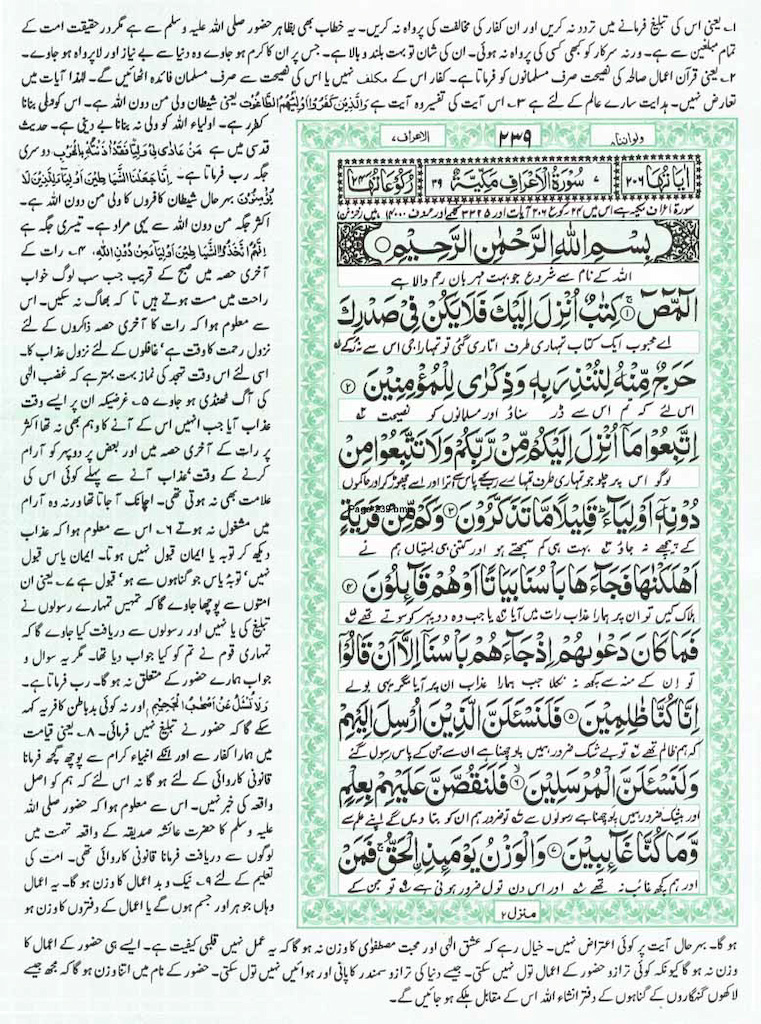 ۱؎ یعنی اس کی تبلیغ فرمانے میں تردد نہ کریں اور ان کفار کی مخالفت کی پرواہ نہ کریں۔ یہ خطاب بھی بظاہر حضور صلی اللہ علیہ وسلم سے ہے مگر در حقیقت امت کے
تمام مبلغین سے ہے۔ ورنہ سرکار کو کبھی کسی کی پرواہ نہ ہوئی۔ ان کی شان تو بہت بلند و بالا ہے۔ جس پر ان کا کرم ہو جاوے وہ دنیا سے بے نیاز اور لاپرواہ ہو جاوے۔
۲؎ یعنی قرآن اعمال صالحہ کی نصیحت صرف مسلمانوں کو فرماتا ہے۔ کفار اس کے مکلف نہیں یا اس کی نصیحت سے صرف مسلمان فائدہ اٹھائیں گے۔ لہذا آیات میں
تعارض نہیں۔ ہدایت سارے عالم کے لئے ہے ۳؎ اس آیت کی تفسیر وہ آیت ہے وَالَّذِيْنَ كَفَرُوْا اَوْلِيٰٓئُهُمُ الطَّاغُوْتُ یعنی شیطان ولی من دون اللہ ہے۔ اس کو ولی بنانا
کفر ہے۔ اولیاء اللہ کو ولی نہ بنانا بے دینی ہے۔ حدیث
قدسی میں ہے مَنْ عَادٰى لِيْ وَلِيًّا فَقَدْ اٰذَنْتُهٗ بِالْحَرْبِ دوسری
جگہ رب فرماتا ہے۔ اِنَّا جَعَلْنَا الشَّيَاطِيْنَ اَوْلِيَآءَ لِلَّذِيْنَ لَا
يُؤْمِنُوْنَ بہر حال شیطان کافروں کا ولی من دون اللہ ہے۔
اکثر جگہ من دون اللہ سے یہی مراد ہے۔ تیسری جگہ ہے
اِنَّهُمُ اتَّخَذُوا الشَّيَاطِيْنَ اَوْلِيَآءَ مِنْ دُوْنِ اللّٰهِ، ۴؎ رات کے
آخری حصہ میں صبح کے قریب جب سب لوگ خواب
راحت میں مست ہوتے ہیں تا کہ بھاگ نہ سکیں۔ اس
سے معلوم ہوا کہ رات کا آخری حصہ ذاکروں کے لئے
نزول رحمت کا وقت ہے، غافلوں کے لئے نزول عذاب کا۔
اسی لئے اس وقت تہجد کی نماز بہت بہتر ہے کہ غضب الہی
کی آگ ٹھنڈی ہو جاوے ۵؎ غرضیکہ ان پر ایسے وقت
عذاب آیا جب انہیں اس کے آنے کا وہم بھی نہ تھا اکثر
پر رات کے آخری حصہ میں اور بعض پر دوپہر کو آرام
کرنے کے وقت، عذاب آنے سے پہلے کوئی اس کی
علامت بھی نہ ہوتی تھی۔ اچانک آ جاتا تھا ورنہ وہ آرام
میں مشغول نہ ہوتے ۶؎ اس سے معلوم ہوا کہ عذاب
دیکھ کر توبہ یا ایمان قبول نہیں ہوتا۔ ایمان یاس قبول
نہیں، توبۂ یاس جو گناہوں سے ہو، قبول ہے ۷؎ یعنی ان
امتوں سے پوچھا جاوے گا کہ تمہیں تمہارے رسولوں نے
تبلیغ کی یا نہیں اور رسولوں سے دریافت کیا جاوے گا کہ
تمہاری قوم نے تم کو کیا جواب دیا تھا۔ مگر یہ سوال و
جواب ہمارے حضور کے متعلق نہ ہو گا۔ رب فرماتا ہے۔
وَلَا تُسْئَلُ عَنْ اَصْحٰبِ الْجَحِيْمِ اور نہ کوئی بدباطن کافر یہ کہہ
سکے گا کہ حضور نے تبلیغ نہیں فرمائی۔ ۸؎ یعنی قیامت
میں ہمارا کفار سے اور انکے انبیاء کرام سے پوچھ گچھ فرمانا
قانونی کاروائی کے لئے ہو گا نہ اس لئے کہ ہم کو اصل
واقعہ کی خبر نہیں۔ اس سے معلوم ہوا کہ حضور صلی اللہ
علیہ وسلم کا حضرت عائشہ صدیقہ کے واقعہ تہمت میں
لوگوں سے دریافت فرمانا قانونی کاروائی تھی۔ امت کی
تعلیم کے لئے ۹؎ نیک و بد اعمال کا وزن ہو گا۔ یہ اعمال
وہاں جو ہر اور جسم ہوں گے یا اعمال کے دفتروں کا وزن ہو
ولواننا ۸
۲۳۹
الاعراف ۷
اٰيَاتُهَا ۲۰۶
۷ سُوْرَةُ الْاَعْرَافِ مَكِّيَّةٌ ۳۹
رُكُوْعَاتُهَا ۲۴
سورۃ اعراف مکیہ ہے اس میں ۲۴ رکوع ۲۰۶ آیات اور ۳۳۲۵ کلمے اور حروف ۱۴۰۰۰ ہیں (خزائن)
بِسْمِ اللّٰهِ الرَّحْمٰنِ الرَّحِيْمِ
اللہ کے نام سے شروع جو بہت مہربان رحم والا ہے
الٓمّٓصٓ ۚ﴿۱﴾ كِتٰبٌ اُنْزِلَ اِلَيْكَ فَلَا يَكُنْ فِيْ صَدْرِكَ
اے محبوب ایک کتاب تمہاری طرف اتاری گئی تو تمہارا جی اس سے نہ رکے
حَرَجٌ مِّنْهُ لِتُنْذِرَ بِهٖ وَ ذِكْرٰى لِلْمُؤْمِنِيْنَ ﴿۲﴾
اس لئے کہ تم اس سے ڈر سناؤ اور مسلمانوں کو نصیحت
اِتَّبِعُوْا مَاۤ اُنْزِلَ اِلَيْكُمْ مِّنْ رَّبِّكُمْ وَ لَا تَتَّبِعُوْا مِنْ
لوگو اس پر چلو جو تمہاری طرف تمہارے رب کے پاس سے اترا اور اسے چھوڑ کر اور حاکموں
دُوْنِهٖۤ اَوْلِيَآءَ ؕ قَلِيْلًا مَّا تَذَكَّرُوْنَ ﴿۳﴾ وَ كَمْ مِّنْ قَرْيَةٍ
Page-239.bmp
کے پیچھے نہ جاؤ بہت ہی کم سمجھتے ہو اور کتنی ہی بستیاں ہم نے
اَهْلَكْنٰهَا فَجَآءَهَا بَاْسُنَا بَيَاتًا اَوْ هُمْ قَآئِلُوْنَ ﴿۴﴾
ہلاک کیں تو ان پر ہمارا عذاب رات میں آیا یا جب وہ دوپہر کو سوتے تھے
فَمَا كَانَ دَعْوٰىهُمْ اِذْ جَآءَهُمْ بَاْسُنَاۤ اِلَّاۤ اَنْ قَالُوْۤا
تو ان کے منہ سے کچھ نہ نکلا جب ہمارا عذاب ان پر آیا مگر یہی بولے
اِنَّا كُنَّا ظٰلِمِيْنَ ﴿۵﴾ فَلَنَسْئَلَنَّ الَّذِيْنَ اُرْسِلَ اِلَيْهِمْ
کہ ہم ظالم تھے تو بے شک ضرور ہمیں پوچھنا ہے ان سے جن کے پاس رسول گئے
وَ لَنَسْئَلَنَّ الْمُرْسَلِيْنَ ﴿۶﴾ فَلَنَقُصَّنَّ عَلَيْهِمْ بِعِلْمٍ
اور بیشک ضرور ہمیں پوچھنا ہے رسولوں سے تو ضرور ہم ان کو بتا دیں گے اپنے علم سے
وَّ مَا كُنَّا غَآئِبِيْنَ ﴿۷﴾ وَ الْوَزْنُ يَوْمَئِذِ ِۨالْحَقُّ ۚ فَمَنْ
اور ہم کچھ غائب نہ تھے اور اس دن تول ضرور ہونی ہے تو جن کے
منزل ۲
ہو گا۔ بہر حال آیت پر کوئی اعتراض نہیں۔ خیال رہے کہ عشق الہی اور محبت مصطفوی کا وزن نہ ہو گا کہ یہ عمل نہیں قلبی کیفیت ہے۔ ایسے ہی حضور کے اعمال کا
وزن نہ ہو گا کیونکہ کوئی ترازو حضور کے اعمال تول نہیں سکتی۔ جیسے دنیا کی ترازو سمندر کا پانی اور ہوائیں نہیں تول سکتی۔ حضور کے نام میں اتنا وزن ہو گا کہ مجھ جیسے
لاکھوں گنہگاروں کے گناہوں کے دفتر انشاء اللہ اس کے مقابل ہلکے ہو جائیں گے۔